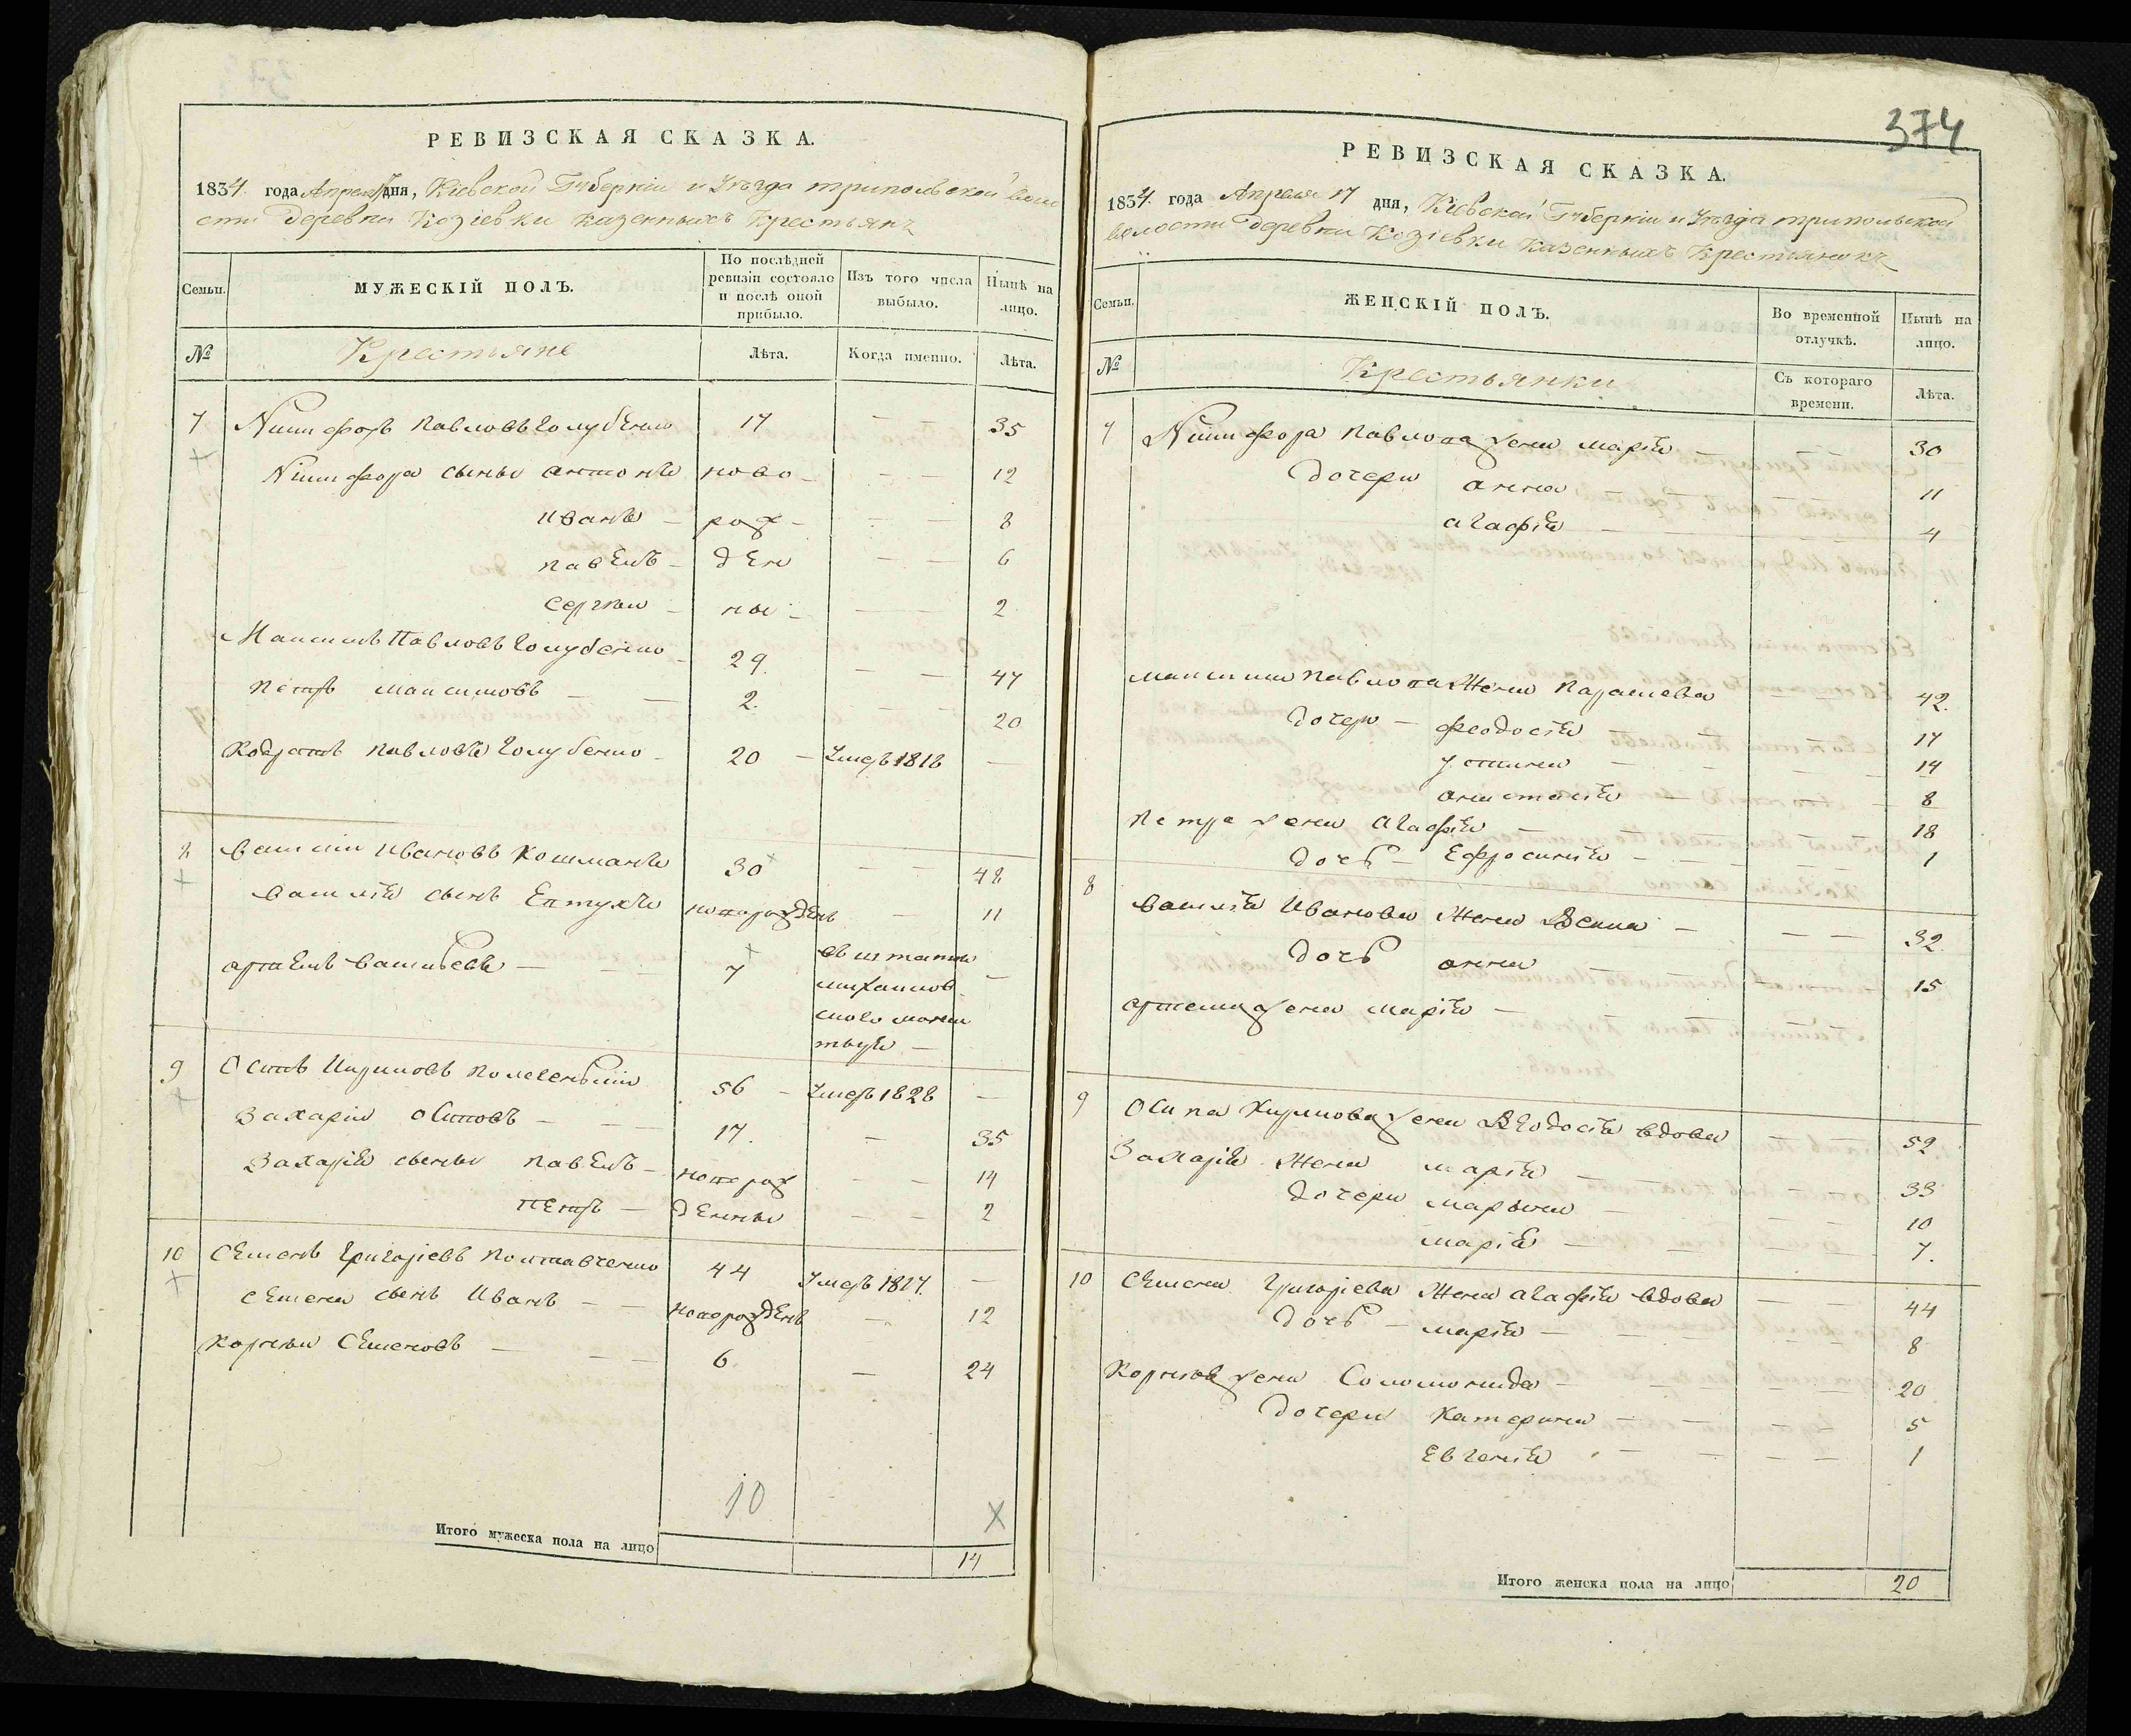 РЕВИЗСКАЯ СКАЗКА.
1834. года Апреля 17 дня, Кіевской Губерніи и Уѣзда трипольской воло
сти деревни Козіевки казенныхъ Крестьянъ
Семьи.
МУЖЕСКІЙ ПОЛЪ.
По послѣдней ревизіи состояло и послѣ оной прибыло.
Изъ того числа выбыло.
Нынѣ на лицо.
№
Крестьяне
Лѣта.
Когда именно.
Лѣта.
7 Никифоръ Павловъ Голубенко 17 — — 35
Никифора сыны антонъ ново — — 12
Иванъ — рож — — — 8
павелъ — ден — — 6
Сергѣй — ны — — — 2
Максимъ Павловъ Голубенко — 29. — — 47
Петръ максимовъ — — 2. — — 20
Кодратъ павловъ Голубенко — 20 — Умеръ 1818 —
8 Василій Ивановъ Кошманъ 30 — — 48
Василія сынъ Евтухъ новорожденъ — 11
артемъ Васильевъ — 7 въ штатъ —
михаилов
ского монас
тыря —
9 Осипъ Кириловъ 56 — Умеръ 1828 —
Захарій Осиповъ — — — 17. — 35
Захарія сыны павелъ — новорож — — 14
петръ — денны — — 2
10 Семенъ Григоріевъ Полтавченко 44 Умеръ 1817. —
Семена сынъ Иванъ — — новорожденъ — 12
Корнѣй Семеновъ — — — 6. — 24
10
Итого мужеска пола на лицо
14
374
РЕВИЗСКАЯ СКАЗКА.
1834. года Апреля 17 дня, Кіевской Губерніи и Уѣзда трипольской
волости деревни Козіевки казенныхъ Крестьянокъ
Семьи.
ЖЕНСКІЙ ПОЛЪ.
Во временной отлучкѣ.
Нынѣ на лицо.
№
Крестьянки
Съ котораго времени.
Лѣта.
7 Никифора Павлова жена марія — 30
дочери анна — — — — 11
агафія — — — — 4
максима павлова Жена Парасцева 42.
дочери — феодосія 17
устина — — — — 14
анастасія — — 8
Петра жена агафія — 18
дочь — Ефросинія — — — 1
8 Василія Иванова Жена — — — 32
дочь анна — — — 15
артема жена марія —
9 Осипа Кирилова жена Феодосія вдова — — 52
Захарія Жена марія — — — 33
дочери марьяна — — — 10
марія — — — — 7.
10 Семена Григоріева Жена агафія вдова — — 44
дочь — марія — — — — — 8
Корнѣя жена Соломонида — — — — — 20
дочери Катерина — — — — 5
Евгенія — — — — 1
Итого женска пола на лицо
20